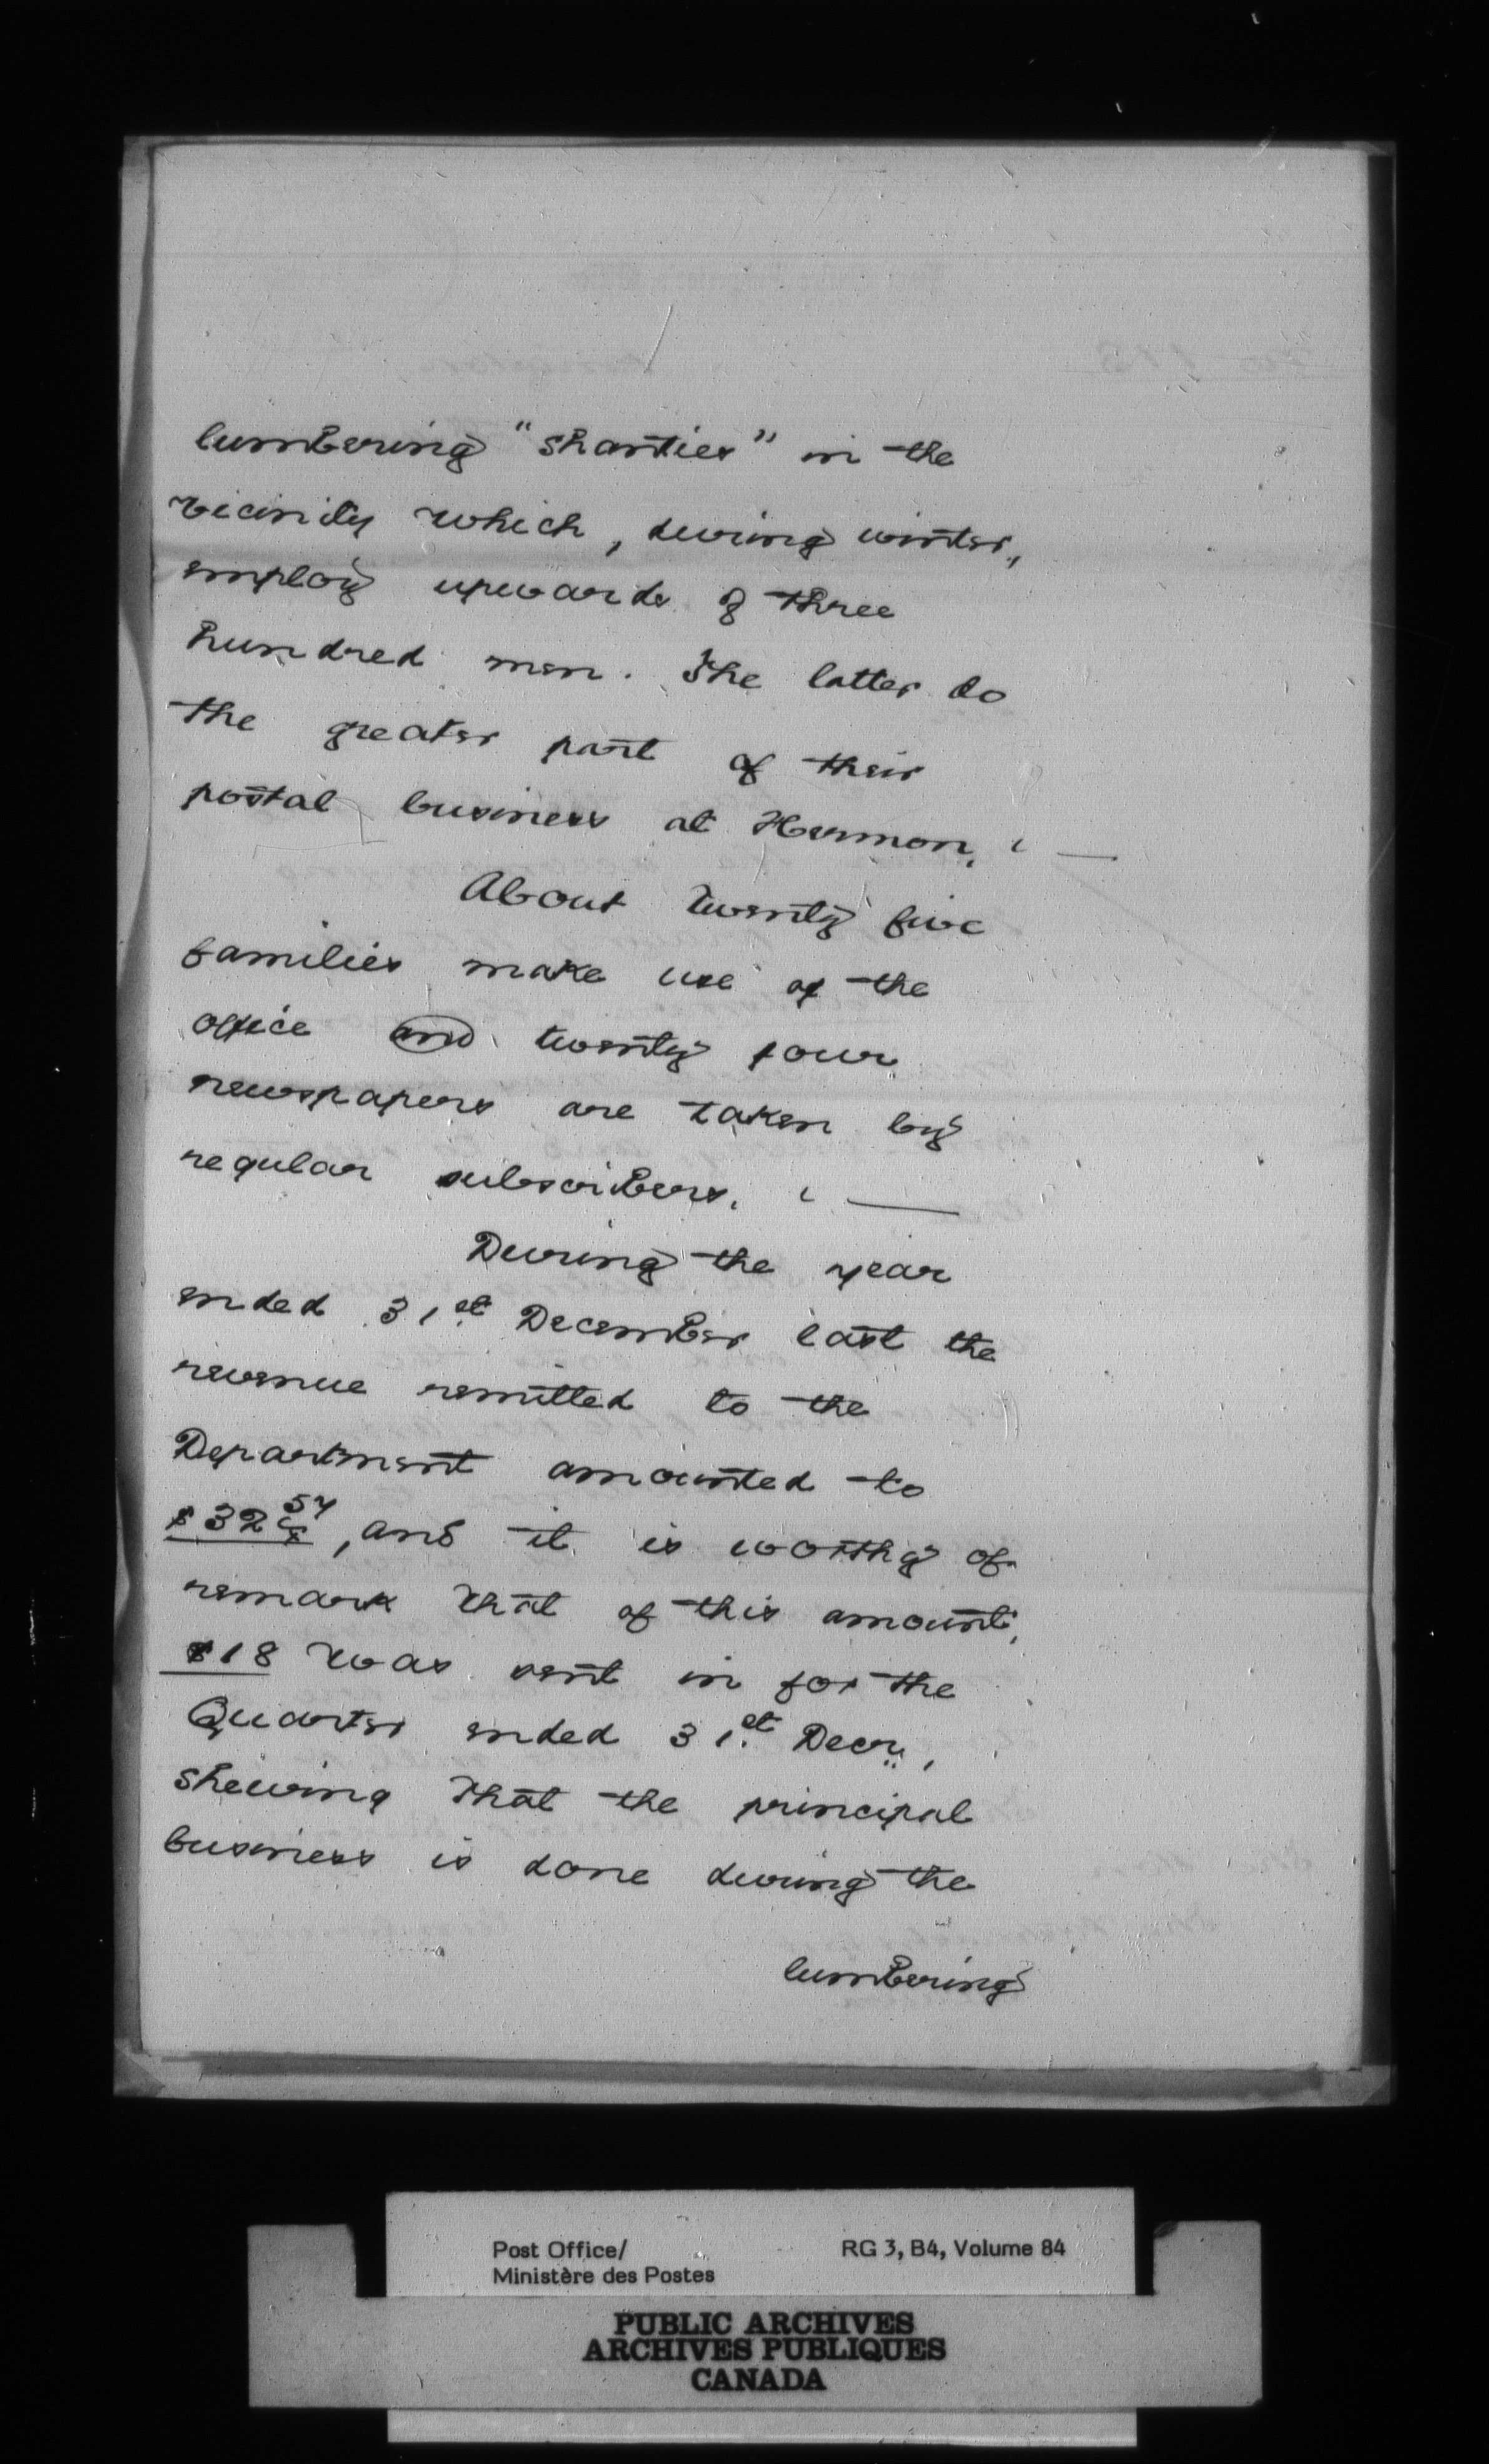 lumbering "shanties" in the
vicinity which, during winter,
employ upwards of three
hundred men. The latter do
the greater part of their
postal business at Hermon. —
About twenty five
families make use of the
office and twenty four
newspapers are taken by
regular subscribers. —
During the year
ended 31st December last the
revenue remitted to the
Department amounted to
and it is worthy of
remark that of this amount,
$18 was sent in for the
Quarter ended 31st Decr.,
shewing that the principal
business is done during the
lumbering
Post Office/ RG 3, B4, Volume 84
Ministère des Postes
PUBLIC ARCHIVES
ARCHIVES PUBLIQUES
CANADA